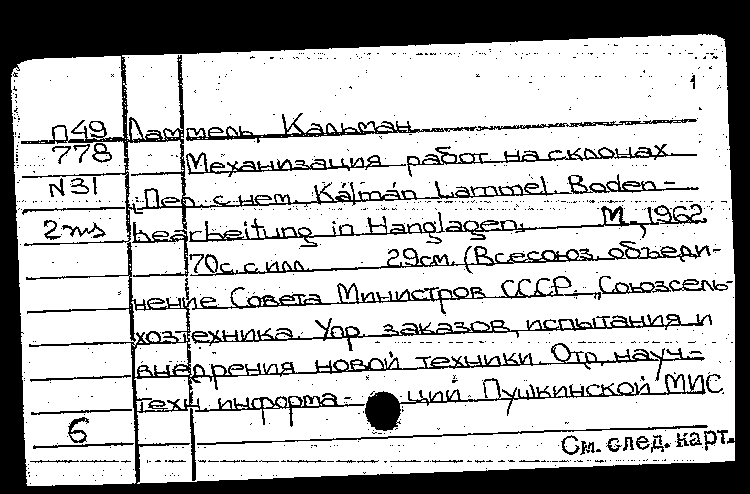 1
П49 Ламмель, Кальман
778 Механизация работ на склонах.
N31 Пер. с нем. Kálmán Lammel. Boden-
2 ms bearbeitung in Hanglagen. М., 1962.
70с. с илл. 29см. (Всесоюз. объеди-
нение Совета Министров СССР. „Союзсель-
хозтехника. Упр. заказов, испытания и
внедрения новой техники. Отд. науч.-
техн. информа- ций. Пушкинской МИС
6
См. след. карт.